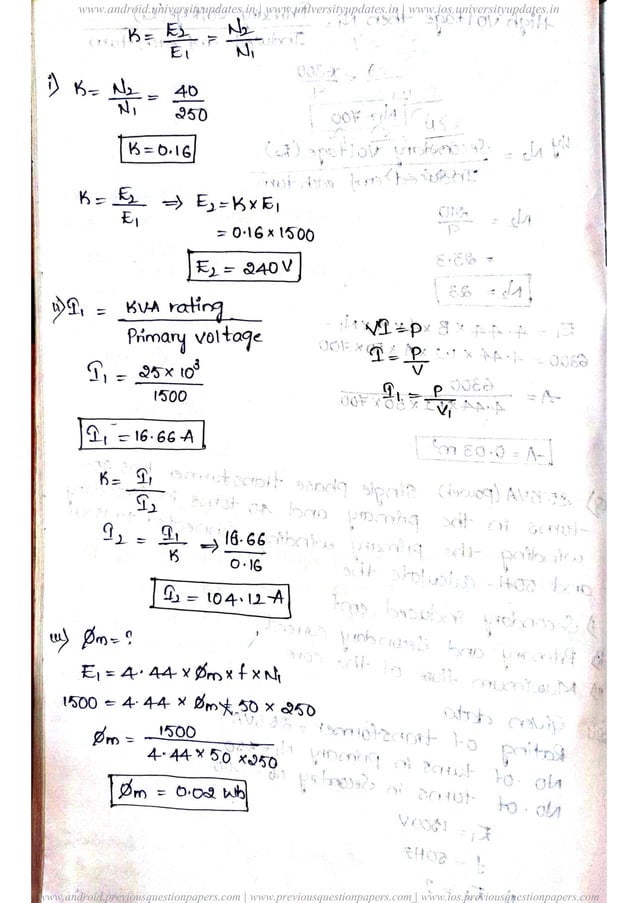 www.android.universityupdates.in | www.universityupdates.in | www.ios.universityupdates.in
K = E2/E1 = N2/N1
i) K = N2/N1 = 40/250
K = 0.16
K = E2/E1 ⇒ E2 = K × E1
= 0.16 × 1500
E2 = 240 V
ii) I1 = KVA rating / Primary voltage
VI = P
I = P/V
I1 = 25 × 10³ / 1500
I1 = P/V1
I1 = 16.66 A
K = I1/I2
I2 = I1/K ⇒ 16.66/0.16
I2 = 104.12 A
iii) Øm = ?
E1 = 4.44 × Øm × f × N1
1500 = 4.44 × Øm × 50 × 250
Øm = 1500 / 4.44 × 50 × 250
Øm = 0.02 wb
www.android.previousquestionpapers.com | www.previousquestionpapers.com | www.ios.previousquestionpapers.com